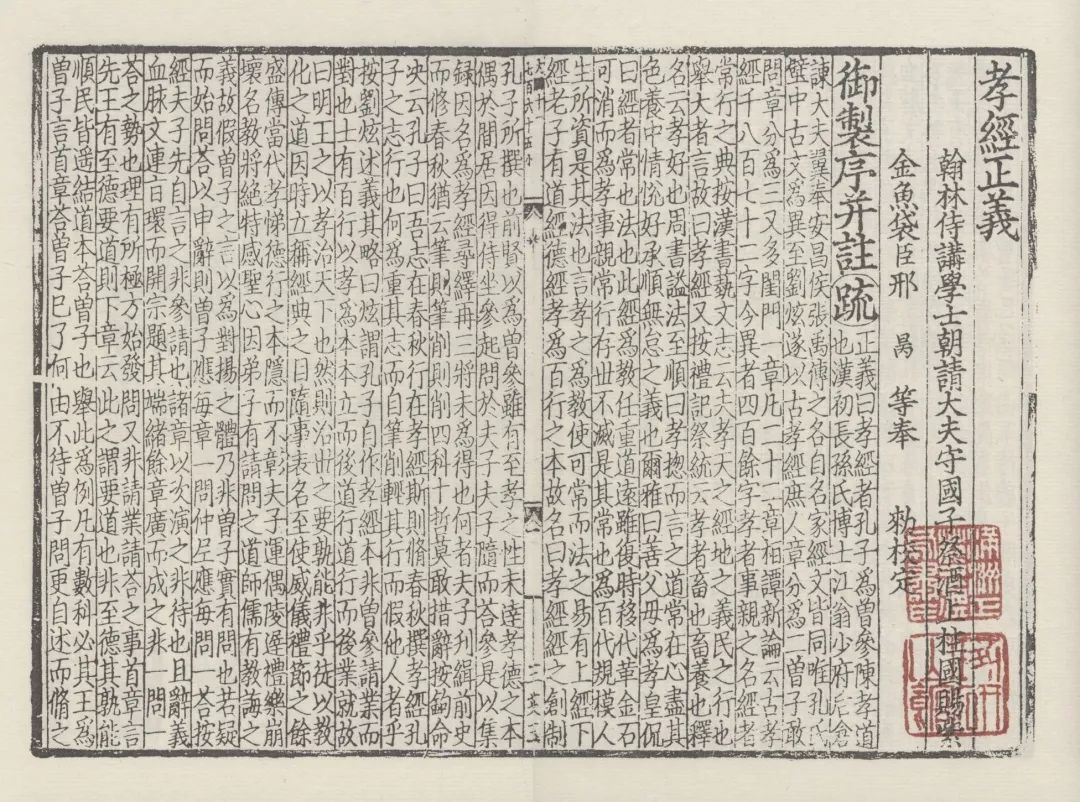 孝經正義
翰林侍講學士朝請大夫守國子祭酒上柱國賜紫
金魚袋臣邢 昺 等奉 勑校定
御製序并註疏 正義曰孝經者孔子為曾參陳孝道
也漢初長孫氏博士江翁少府后倉
諫大夫翼奉安昌侯張禹傳之各自名家經文皆同唯孔氏
壁中古文為異至劉炫遂以古孝經庶人章分為二曾子敢
問章分為三又多閨門一章凡二十二章桓譚新論云古孝
經千八百七十二字今異者四百餘字孝者事親之名經者
常行之典按漢書藝文志云夫孝天之經地之義民之行也
舉大者言故曰孝經又按禮記祭統云孝者畜也畜養也釋
名云孝好也周書謚法至順曰孝揔而言之道常在心盡其
色養中情恱好承順無怠之義也爾雅曰善父毋為孝皇侃
曰經者常也法也此經為教任重道遠雖復時移代革金石
可消而為孝事親常行存世不滅是其常也為百代規模人
生所資是其法也言孝之為教使可常而法之易有上經下
經老子有道經德經孝為百行之本故名曰孝經經之創制
孔子所撰也前賢以為曾參雖有至孝之性未達孝德之本
偶於間居因得侍坐參起問於夫子夫子隨而荅參是以集
録因名為孝經尋繹再三將未為得也何者夫子刋緝前史
而修春秋猶云筆則筆削則削四科十哲莫敢措辭按鉤命
决云孔子曰吾志在春秋行在孝經斯則脩春秋撰孝經孔
子之志行也何為重其志而自筆削輕其行而假他人者乎
按劉炫述義其略曰炫謂孔子自作孝經本非曾參請業而
對也士有百行以孝為本本立而後道行道行而後業就故
曰明王之以孝治天下也然則治世之要孰能非乎徒以教
化之道因時立稱經典之目隨事表名至使威儀禮節之餘
盛傳當代孝悌德行之本隱而不彰夫子運偶陵遲禮樂崩
壞名教將絕特感聖心因弟子有請問之道師儒有教誨之
義故假曾子之言以為對揚之體乃非曾子實有問也若疑
而始問荅以申辭則曾子應每章一問仲尼應每問一荅按
經夫子先自言之非參請也諸章以次演之非待也且辭義
血脉文連旨環而開宗題其端緒餘章廣而成之非一問一
荅之勢也理有所極方始發問又非請業請荅之事首章言
先王有至德要道則下章云此之謂要道也非至德其孰能
順民皆遥結道本荅曾子也舉此為例凡有數科必其王為
曾子言首章荅曾子已了何由不待曾子問更自述而脩之